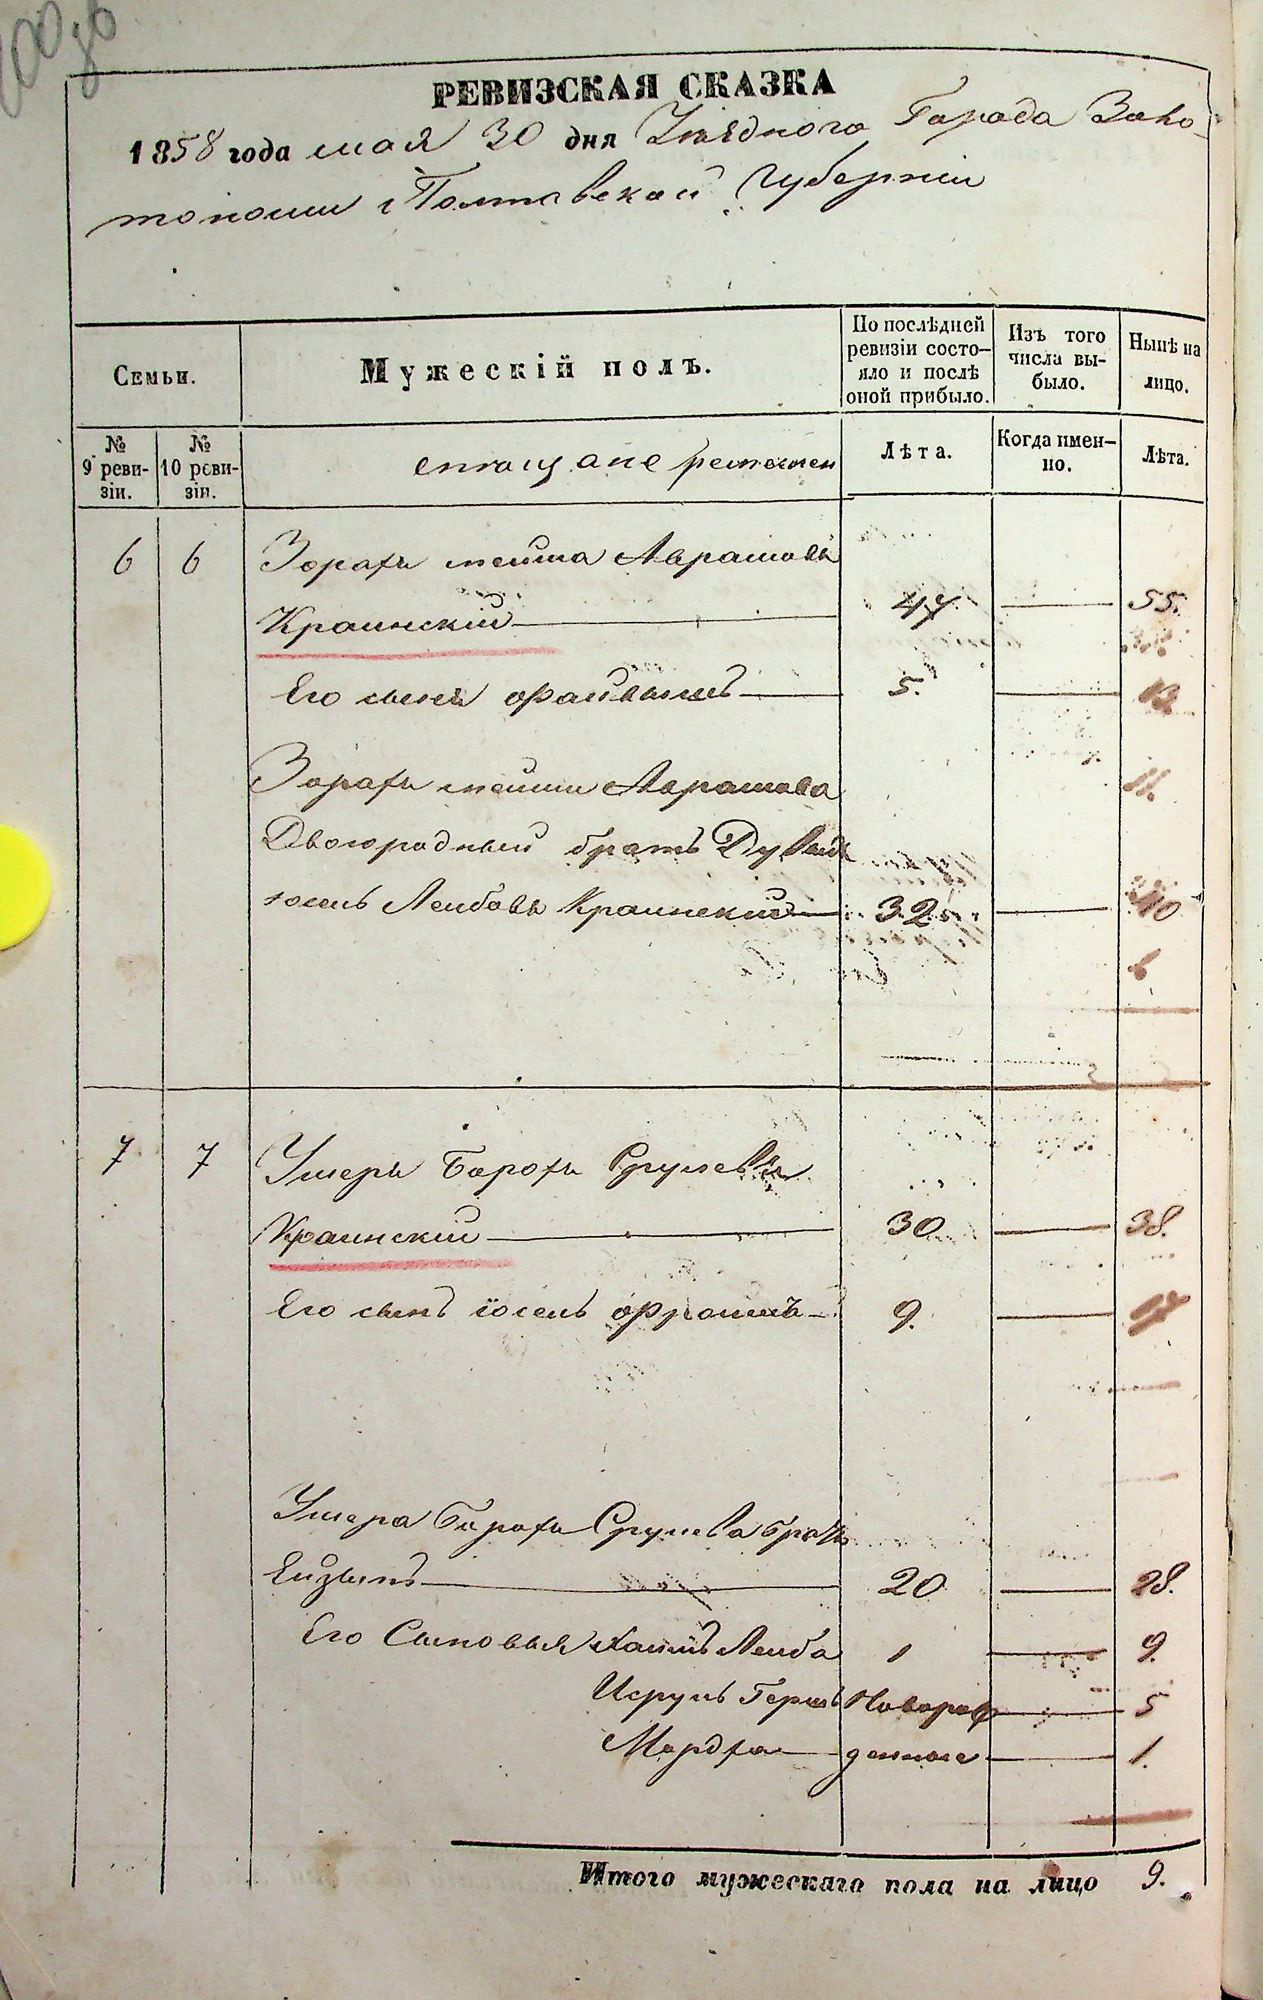 РЕВИЗСКАЯ СКАЗКА
1858 года мая 30 дня Уѣзднаго Города Золо-
тоноши Полтавской Губерніи
Семьи.
Мужескій полъ.
По послѣдней ревизіи состо-яло и послѣ оной прибыло.
Изъ того числа вы-было.
Нынѣ на лицо.
№ 9 реви-зіи.
№ 10 реви-зіи.
Лѣта.
Когда имен-но.
Лѣта.
6 6 Зорахъ Аврамовъ
Краинскій 47 55.
Его сынъ 5. 13
Зораха Аврамова 11.
Двоюродный братъ
Лейбовъ Краинскій 32 40
6
7 7 Умеръ Борохъ Срулевъ
Краинскій 30 38.
Его сынъ Іосель Фроимъ 9. 17
Умера Бороха Срулева братъ
Ейзикъ 20 28.
Его Сыновья Хаимъ Лейба 1 9.
Исруль Гершъ Новорож 5
Мордхо денные 1.
Итого мужескаго пола на лицо 9.